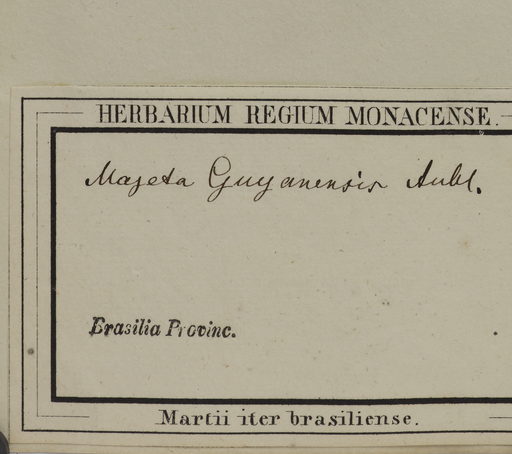 HERBARIUM REGIUM MONACENSE.
Majeta Guyanensis Aubl.
Brasilia Provinc.
Martii iter brasiliense.